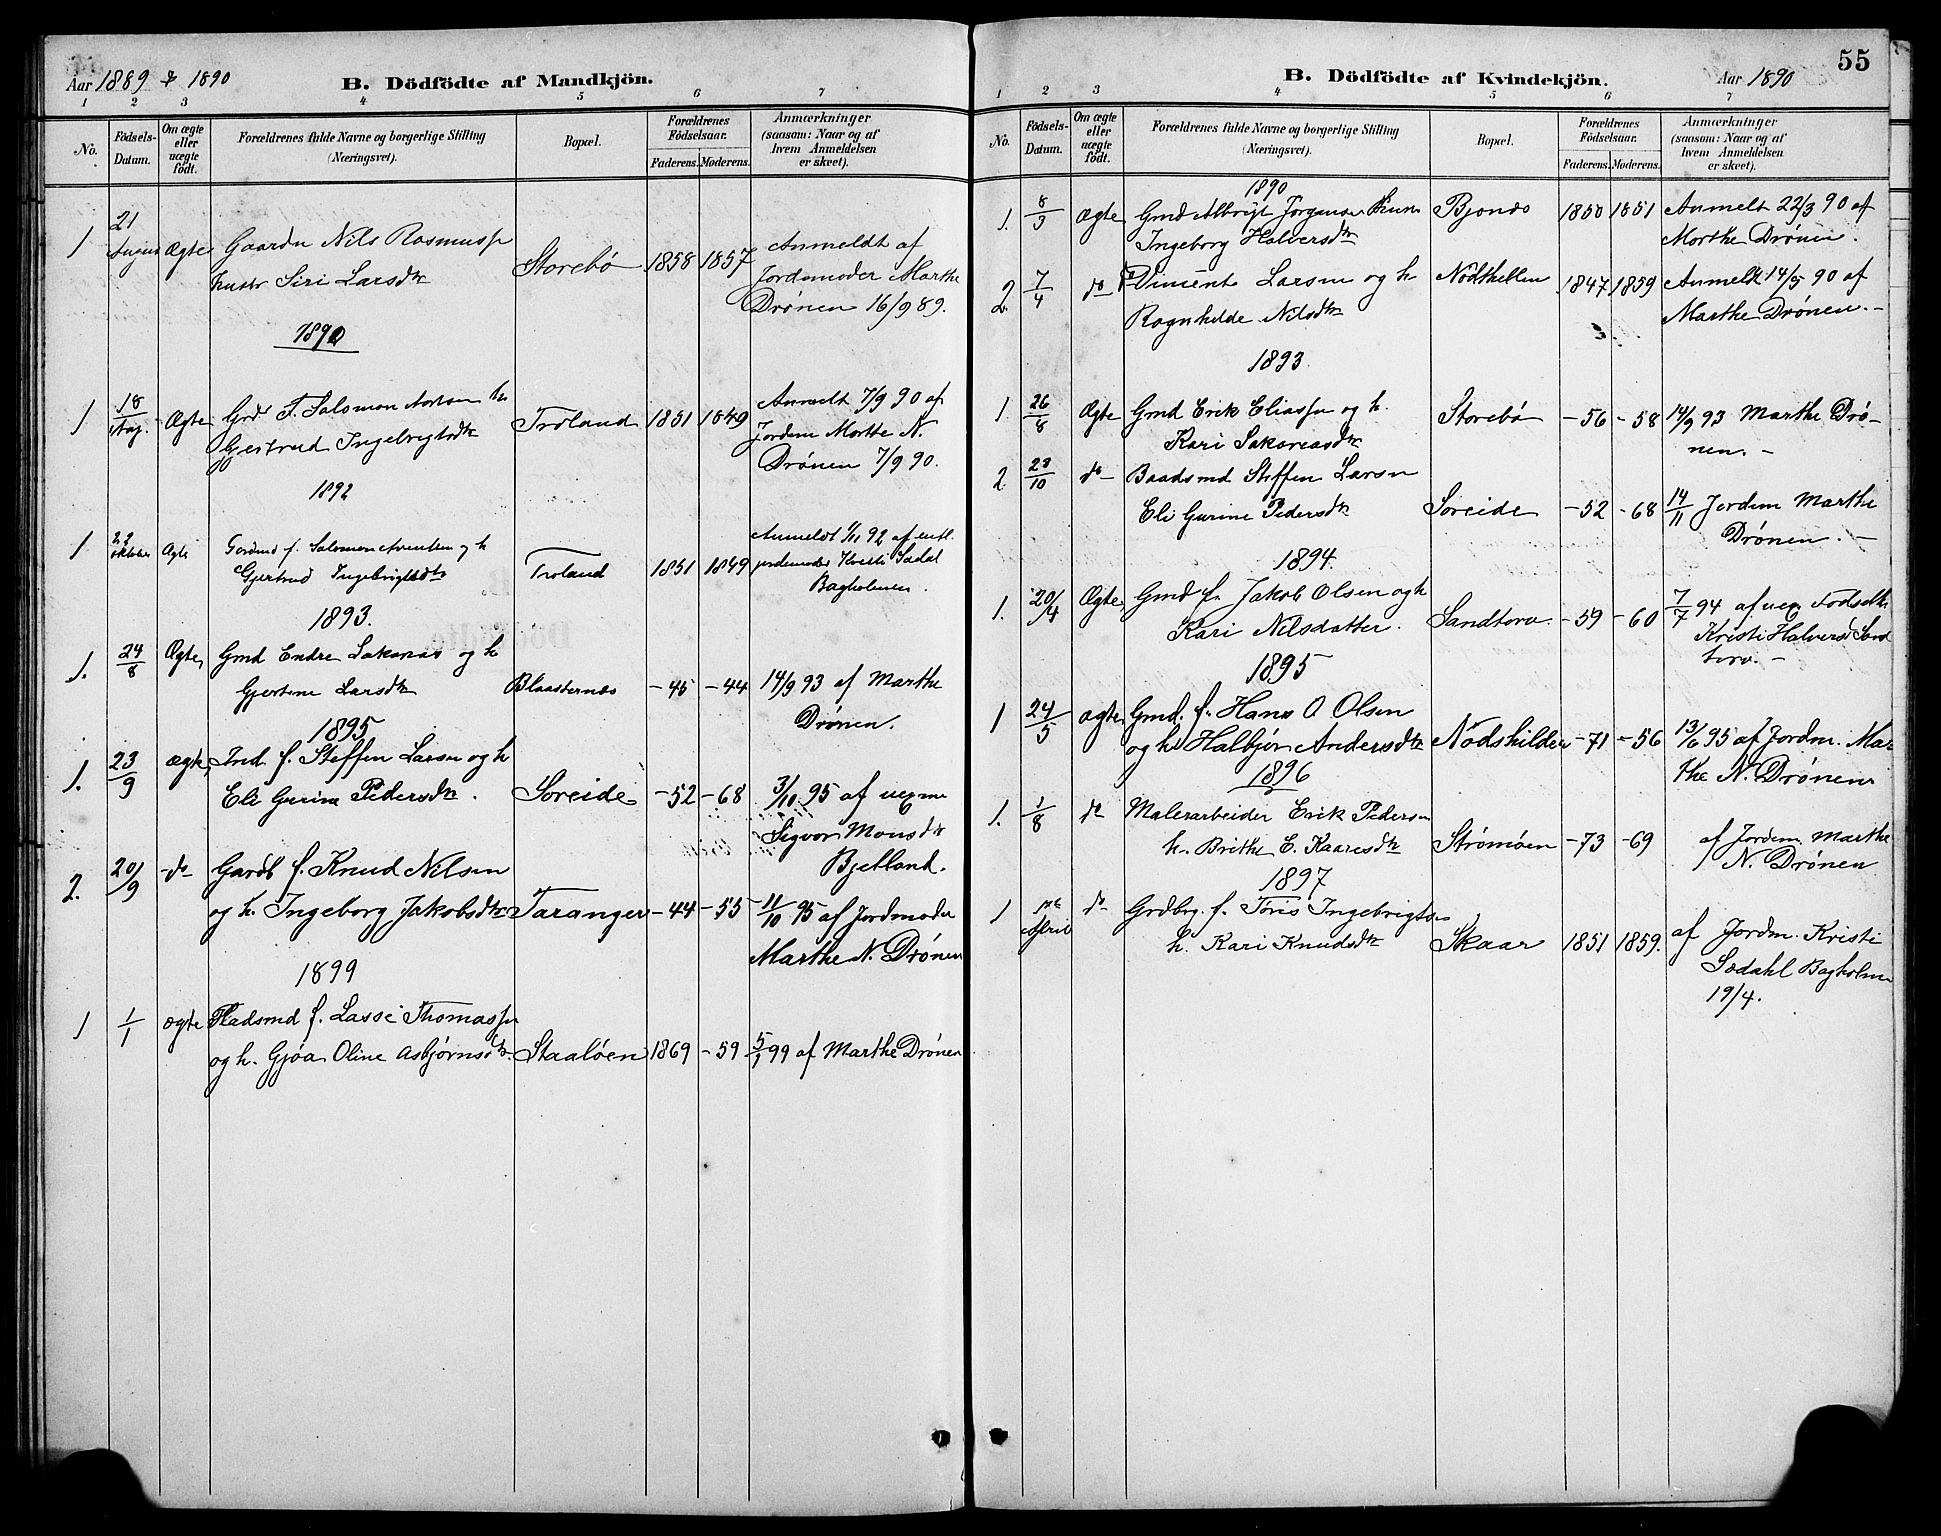 Aar 1889 & 1890
B. Dödfödte af Mandkjön.
1 2 3 4 5 6 7
No.
Födsels-Datum.
Om ægte eller uægte födt.
Forældrenes fulde Navne og borgerlige Stilling
(Næringsvei).
Bopæl.
Forældrenes Födselsaar.
Faderens. Moderens.
Anmærkninger
(saasom: Naar og af
hvem Anmeldelsen
er skeet).
1 21 August Ægte Gaardm Nils Rasmussn
hustr Siri Larsdtr Storebø 1858 1857 Anmeldt af
Jordemoder Marthe
Drönen 16/9 89.
1890
1 18/Aug. Ægte Grdr F. Salomon hu
Gjertrud Ingebrigtsdtr Troland 1851 1849 Anmelt 7/9 90 af
Jordem Marthe N.
Drönen 7/9 90.
1892
1 22 oktober Ægte Gordmd f. Salomon og h
Gjertrud Ingebrigtsdtr Troland 1851 1849 Anmeldt 1/11 92 af entl.
jordemoder Kristi Sædal
Bagholmen.
1893.
1. 24/8 Ægte Gmd Endre Sakarias og h
Gjertine Larsdtr Blaasternæs -45 -44 14/9 93 af Marthe
Drönen.
1895
1. 23/9 ægte Ind. f. Steffen Larsen og h
Eli Gurine Pedersdtr. Söreide -52 -68 3/10 95 af uexm
Sigvor Monsdtr
Bjelland.
2. 20/9 do Gardb f. Knud Nilsen
og h. Ingeborg Jakobsdtr Taranger -44 -55 11/10 95 af Jordmoder
Marthe N. Drönen
1899
1 1/1 ægte Pladsmd f. Lasse Thomassn
og h. Gjöa Oline Asbjörnsdtr. Staalöen 1869 -59 5/1 99 af Marthe Drönen
55
B. Dödfödte af Kvindekjön.
Aar 1890
1 2 3 4 5 6 7
No.
Födsels-Datum.
Om ægte eller uægte födt.
Forældrenes fulde Navne og borgerlige Stilling
(Næringsvei).
Bopæl.
Forældrenes Födselsaar.
Faderens. Moderens.
Anmærkninger
(saasom: Naar og af
hvem Anmeldelsen
er skeet).
1890
1. 8/3 Ægte Gmd Albrigt Jörgensen
Ingeborg Halversdtr Bjonæs 1850 1851 Anmelt 22/3 90 af
Marthe Drönen.
2. 7/4 do Vinsent Larsen og h
Ragnhilde Nilsdtr Nödthellen 1847 1859 Anmelt 14/5 90 af
Marthe Drönen. -
1893
1. 26/8 Ægte Gmd Erik Eliassn og h.
Kari Sakariasdtr Storebø -56 -58 14/9 93 Marthe Drö-
nen. -
2. 28/10 do Baadsmd Steffen Larsn
Eli Gurine Pedersdtr Söreide -52 -68 14/11 Jordem Marthe
Drönen. -
1894.
1. 20/4 Ægte Gmd f. Jakob Olsen og h
Kari Nilsdatter. Sandtorv -59 -60 7/7 94 af uex. Födselh
Kristi Halversd Sand
torv. -
1895
1 24/5 ægte Gmd. f. Hans O Olsen
og h Halbjör Andersdtr Nödshilder -71 -56 13/6 95 af Jordm. Mar
the N. Drönen
1896
1. 1/8 do Malerarbeider Erik Pedersn
h. Brithe E. Kaaresdtr Strömöen -73 -69 af Jordem. Marthe
N. Drönen
1897
1 April do Grdbrg. f. Töris Ingebrigts
h. Kari Knudsdtr Skaar 1851 1859. af Jordm. Kristi
Sædahl Bagholm
19/4.